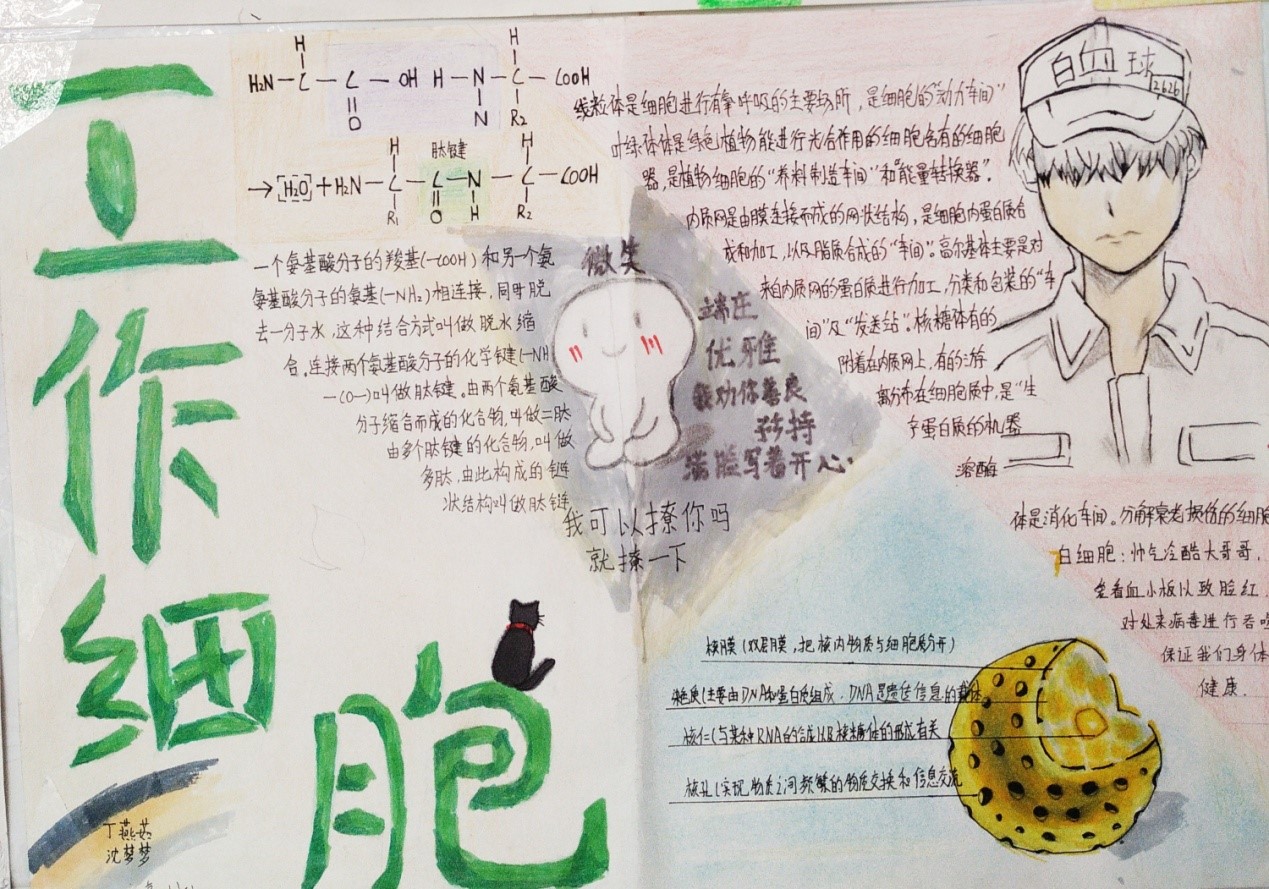 工作细胞
H
H
H₂N—C—C—OH H—N—C—COOH
O
N
R₂
H
肽键
H
→[H₂O]+H₂N—C—C—N—C—COOH
R₁
O
H
R₂
一个氨基酸分子的羧基(—COOH)和另一个氨
氨基酸分子的氨基(—NH₂)相连接,同时脱
去一分子水,这种结合方式叫做脱水缩
合。连接两个氨基酸分子的化学键(—NH
—CO—)叫做肽键。由两个氨基酸
分子缩合而成的化合物,叫做二肽
由多个肽键的化合物,叫做
多肽,由此构成的链
状结构叫做肽链
微笑
端庄
优雅
我劝你善良
矜持
满脸写着开心.
我可以撩你吗
就撩一下
线粒体是细胞进行有氧呼吸的主要场所,是细胞的“动力车间”
叶绿体体是绿色植物能进行光合作用的细胞含有的细胞
器,是植物细胞的“养料制造车间”和“能量转换器”。
内质网是由膜连接而成的网状结构,是细胞内蛋白质合
成和加工,以及脂质合成的“车间”。高尔基体主要是对
来自内质网的蛋白质进行加工,分类和包装的“车
间”及“发送站”。核糖体有的
附着在内质网上,有的游
离分布在细胞质中,是“生
产蛋白质的机器
溶酶
体是消化车间。分解衰老损伤的细胞
白血球
2626
白细胞:帅气冷酷大哥哥,
坐看血小板以致脸红.
对外来病毒进行吞噬
保证我们身体
健康.
核膜(双层膜,把核内物质与细胞质分开)
染色质(主要由DNA和蛋白质组成,DNA是遗传信息的载体
核仁(与某种RNA的合成以及核糖体的形成有关
核孔(实现物质之间频繁的物质交换和信息交流
丁燕茹
沈梦梦